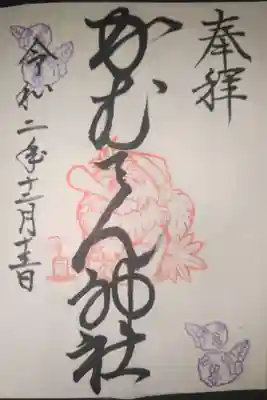 奉拝
かむてん神社
令和二年十二月十三日